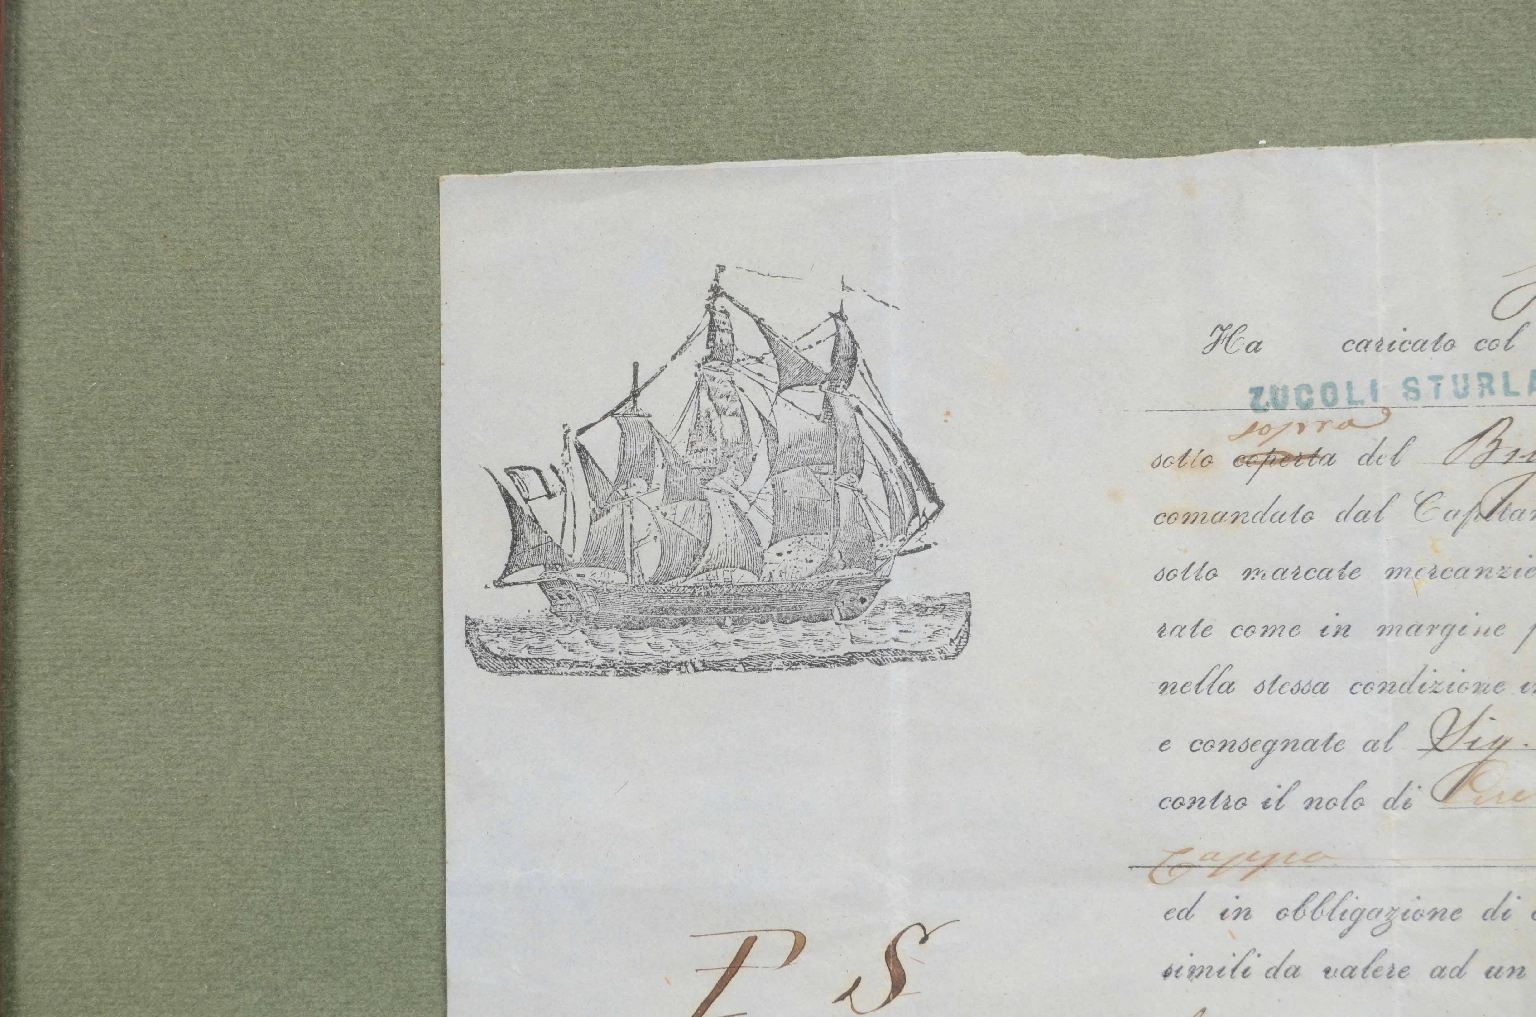 Ha caricato col
ZUCOLI STURLA
sopra
sotto coperta del
comandato dal Capitan
sotto marcate mercanzie
rate come in margine p
nella stessa condizione in
e consegnate al Sig.
contro il nolo di
Cappa
ed in obbligazione di
simili da valere ad un
P S